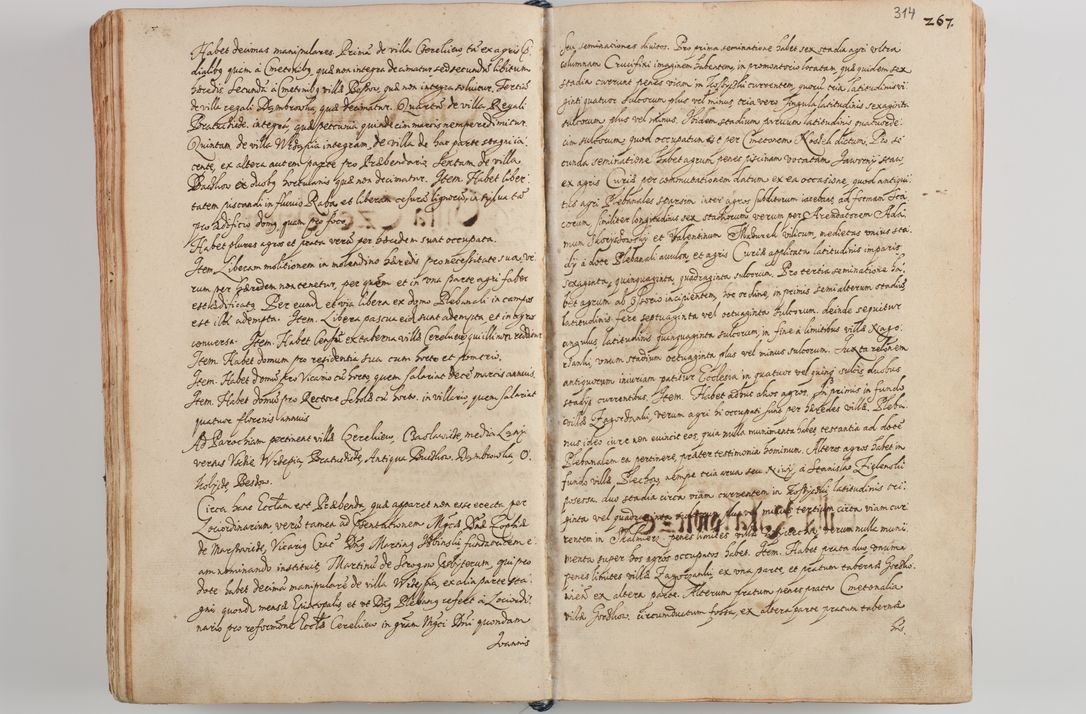 Habet decimas manipulares. Primã de villa Cerekiew tã ex agris P
dialib9 quàm à Cmetonib9, quæ non integra decimatur, sed secundũ libitum
hæredis. Secundã à metonib9 villæ Bessow, quæ non integra soluitur. Tertiã
de villa regali Dąmbrowka, quæ decimatur. Quartam de villa Regali
Bratucide, integrã, quæ pecunia quindecim marcis nempe redimitur.
Quintam de villa Wrzepia integram, de villa de hac parte stagni ia,,
cente, ex altera autem parte pro Præbendario. Sextam de villa
Baslow ex duob9 hortulanis quæ non decimatur. Item. Habet liber,,
tatem piscandi in fluuio Raba, et liberam cesurã lignorũ, in sylua tã
pro ædificio dom9, quàm pro foco.
Habet plures agros et prata verũ per hæredem sunt occupata.
Item. Liberam molitionem in molendino hæredis pro necessitate sua, ve,,
rum per hæredem non tenetur, per quem et in vna parte agri faber
est ædificat9. Per eund. et via libera ex domo Plebanali in campos
est illi adempta. Item. Libera pascua eid. sunt adempta, et in agros
conuersa. Item. Habet Censũ ex taberna villæ Cerekiew qui illi nõ redditur
Item. Habet domum pro residentia sua cum horto et pomario.
Item. Habet domũ pro Vicario cũ horto, quem salariat decẽ marcis annuis.
Item. Habet domũ pro Rectore Scholæ cũ horto. in villerio quem salariat
quatuor florenis annuis.
Ad Parochiam pertinent villæ Cerekiew, Baslawide, media Lany
versus Vschie, Wrzepia, Bratuchide, Antiqua Buczkow, Dąmbrowka, O,,
kolycze, Bessow.
Circa hanc Ecctam est Præbenda, quæ apparet non esse erecta per
Loci ordinarium verũ tamen ad Præsentationem Mgcæ Dnæ Zophiæ
de Marszowide, Vicarig Crac
am nominando instituit, Martinũ de Scrogow Presbyterum, qui pro
dote habet decimã manipularẽ de villa Wrzepia, ex alia parte sta,,
gni quondã mensæ Episcopalis et vt Dn9 Plebanus refert à Loci ordi,,
nario pro reformone Ecctæ Cerekiew in gram Mgci Dni quondam
Joannis

314
267.
seu seminationes diuisos. Pro prima seminatione habet sex stadia agri vltra
columnam Crucifixi imaginem habentem, in promontorio locatam, quæ quidem sex
stadia currunt penes viam in Kossyczki currentem, quorũ tria latitudinis vi,,
ginti quatuor sulcorum plus vel minus, tria vero singula latitudinis sexaginta
sulcorum, plus vel minus. Ibidem stadium paruum latitudinis quatuorde,,
cim sulcorum, quod occupatum est per Cmetonem Kiosek dictum. Pro se,,
cunda seminatione habet agrum penes piscinam vocatam Jaworny staw,
ex agris Curiæ per commutationem datum ex ea occasione, quod antiqui,,
tus agri Plebanales sparsim inter agros subditorum iacebant, ad formam Sca,,
corum, similiter longitudinis sex stadiorum, verum per Arendatorem Ada,,
mum Skorzkowski et Valentinum Madurek villicum, medietas vnius sta,,
dij à dote Plebanali auulsa, et agris Curiæ applicata, latitudinis imparis
sexaginta, quinquaginta, quadraginta sulcorum. Pro tertia seminatione ha,,
bet agrum, ab Osorio incipientem, hoc ordine, in primis semialterum stadiũ
latitudinis fere septuaginta vel octuaginta sulcorum, deinde sequitur
angulus, latitudinis quinquaginta sulcorum, in fine à limitibus villæ Zagro,,
dzanki, vnum stadium octuaginta plus vel minus sulcorum. Juxta relationem
antiquorum iniuriam patitur Ecclesia in quatuor vel quinq sulcis duobus
stadijs currentibus. Item. Habet adhuc alios agros. In primis in fundo
villæ Zagrodzanki, verum agri hi occupati sunt per hæredes villæ. Pleba,,
nus ideo iure non euincit eos, quia nulla munimenta habet testantia ad dotẽ
Plebanalem ea pertinere, præter testimonia hominum. Alteros agros habet in
fundo villæ Plechow, nempe tria vrua seu Niwy, à Stanislao Zielenski
possessa, duo stadia circa viam currentem in Kossyczki latitudinis tri,,
ginta vel quadraginta tertium circa viam cur,,
rentem in Skalmierz, penes limites villæ verum nulla muni,,
menta super hos agros occupatos habet. Item. Habet prata duo, vnum
penes limites villæ Zagrodzanki, ex vna parte, et pratum tabernæ Gorzko,,
wien. ex altera parte. Alterum pratum penes prata Cmetonalia
villæ Gorzkow, circumductum fossa, ex altera parte pratum tabernæ